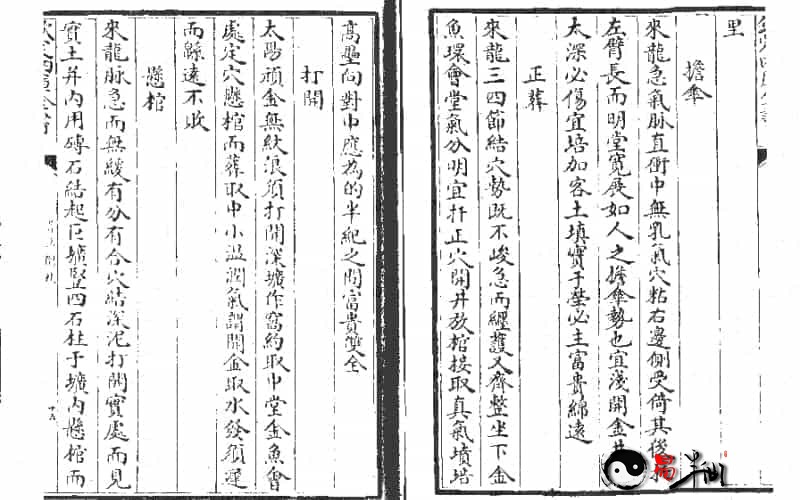 里
擔傘
來龍急氣脉直衝中無乳氣穴粘右邊側受倚其後
左臂長而明堂寬展如人之擔傘勢也宜淺開金井
太深必傷宜培加客土填實于塋必主富貴綿遠
正葬
來龍三四節結穴勢既不峻急而纏護又齊整坐下金
魚環會堂氣分明宜扦正穴開井放棺接取真氣墳培
高壘向對中應為的半紀之間富貴雙全
打開
太陽頑金無紋浪須打開深壙作窩約取中堂金魚會
處定穴懸棺而葬取中小温潤氣謂開金取水發須遲
而緜遠不敗
懸棺
來龍脉急而無緩有分有合穴結深泥打開實處而見
實土井内用磚石結起巨壙豎四石柱于壙内懸棺而